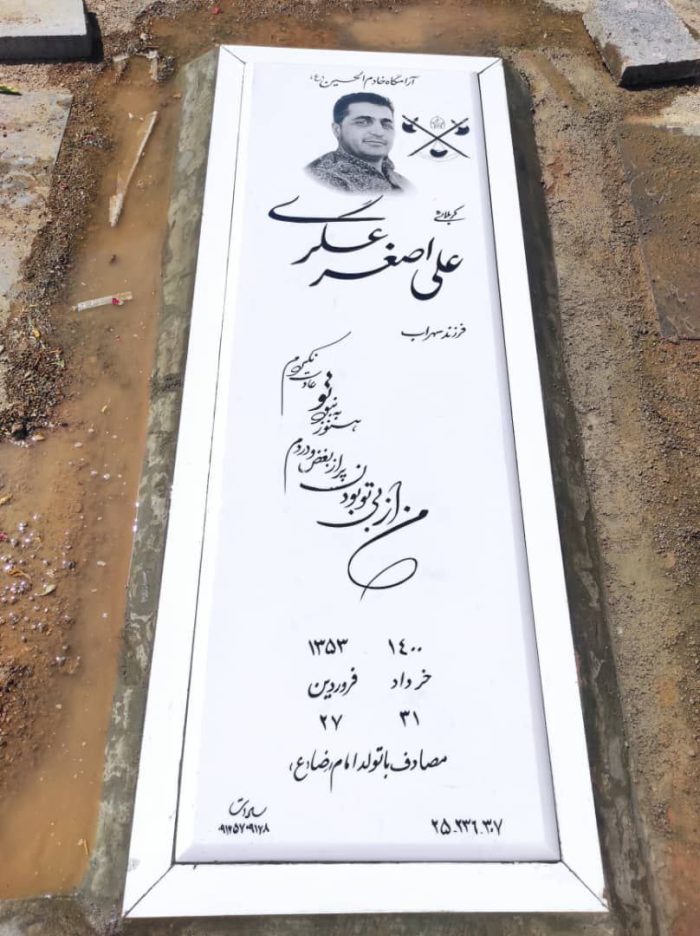 آرامگاه خادم الحسین (ع)
کربلایی
علی اصغر عسگری
فرزند سهراب
من از بی تو بودن
پر از بغض و دردم
هنوز به نبود تو
عادت نکردم
۱۴۰۰ ۱۳۵۳
خرداد فروردین
۳۱ ۲۷
مصادف با تولد امام رضا (ع)
۲۵.۲۳۶.۳۰۷